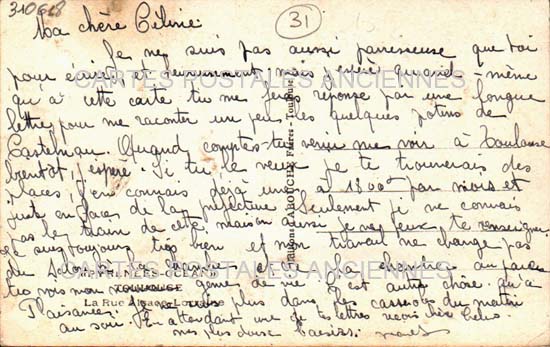 310618
31
Ma chère Céline
Je ne suis pas aussi paresseuse que toi
pour écrire et j'espère quand-même
CARTES POSTALES ANCIENNES
qu'à cette carte tu me feras réponse par une longue
lettre pour me raconter un peu des quelques potins de
Castelnau. Quand comptes-tu venir me voir à Toulouse
bientôt j'espère. Si tu le veux je te trouverais des
places, j'en connais déjà une à 1800 par mois et
juste en face de la préfecture Seulement je ne connais
pas le train de cette maison aussi je ne peux te renseigner.
Je suis toujours très bien et mon travail ne change pas
du
CARTES POSTALES ANCIENNES
mon genre de vie. C'est autre chose qu'à
TOULOUSE
La Rue Alsace-Lorraine
Plaisance. Je ne suis plus dans les casseroles du matin
au soir. En attendant une de tes lettres reçois chère Céline
mes plus doux baisers.
Maison LABOUCHE Frères - Toulouse